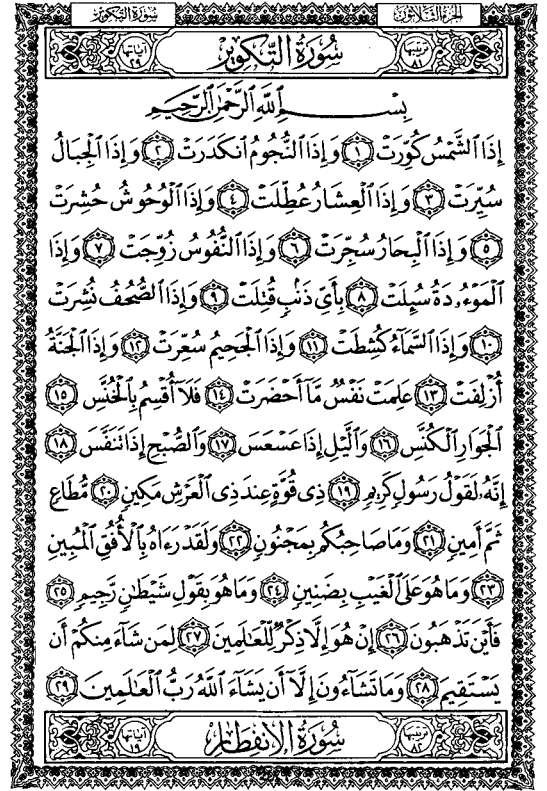 الجزء الثلاثون سورة التكوير
ترتيبها ٨١ سُورَةُ التَّكْوِيرِ آياتها ٢٩
بِسْمِ اللَّهِ الرَّحْمَٰنِ الرَّحِيمِ
إِذَا ٱلشَّمْسُ كُوِّرَتْ ١ وَإِذَا ٱلنُّجُومُ ٱنكَدَرَتْ ٢ وَإِذَا ٱلْجِبَالُ
سُيِّرَتْ ٣ وَإِذَا ٱلْعِشَارُ عُطِّلَتْ ٤ وَإِذَا ٱلْوُحُوشُ حُشِرَتْ
٥ وَإِذَا ٱلْبِحَارُ سُجِّرَتْ ٦ وَإِذَا ٱلنُّفُوسُ زُوِّجَتْ ٧ وَإِذَا
ٱلْمَوْءُۥدَةُ سُئِلَتْ ٨ بِأَىِّ ذَنۢبٍ قُتِلَتْ ٩ وَإِذَا ٱلصُّحُفُ نُشِرَتْ
١٠ وَإِذَا ٱلسَّمَآءُ كُشِطَتْ ١١ وَإِذَا ٱلْجَحِيمُ سُعِّرَتْ ١٢ وَإِذَا ٱلْجَنَّةُ
أُزْلِفَتْ ١٣ عَلِمَتْ نَفْسٌ مَّآ أَحْضَرَتْ ١٤ فَلَآ أُقْسِمُ بِٱلْخُنَّسِ ١٥
ٱلْجَوَارِ ٱلْكُنَّسِ ١٦ وَٱلَّيْلِ إِذَا عَسْعَسَ ١٧ وَٱلصُّبْحِ إِذَا تَنَفَّسَ ١٨
إِنَّهُۥ لَقَوْلُ رَسُولٍ كَرِيمٍ ١٩ ذِى قُوَّةٍ عِندَ ذِى ٱلْعَرْشِ مَكِينٍ ٢٠ مُّطَاعٍ
ثَمَّ أَمِينٍ ٢١ وَمَا صَاحِبُكُم بِمَجْنُونٍ ٢٢ وَلَقَدْ رَءَاهُ بِٱلْأُفُقِ ٱلْمُبِينِ
٢٣ وَمَا هُوَ عَلَى ٱلْغَيْبِ بِضَنِينٍ ٢٤ وَمَا هُوَ بِقَوْلِ شَيْطَٰنٍ رَّجِيمٍ ٢٥
فَأَيْنَ تَذْهَبُونَ ٢٦ إِنْ هُوَ إِلَّا ذِكْرٌ لِّلْعَٰلَمِينَ ٢٧ لِمَن شَآءَ مِنكُمْ أَن
يَسْتَقِيمَ ٢٨ وَمَا تَشَآءُونَ إِلَّآ أَن يَشَآءَ ٱللَّهُ رَبُّ ٱلْعَٰلَمِينَ ٢٩
ترتيبها ٨٢ سُورَةُ الانفِطَارِ آياتها ١٩